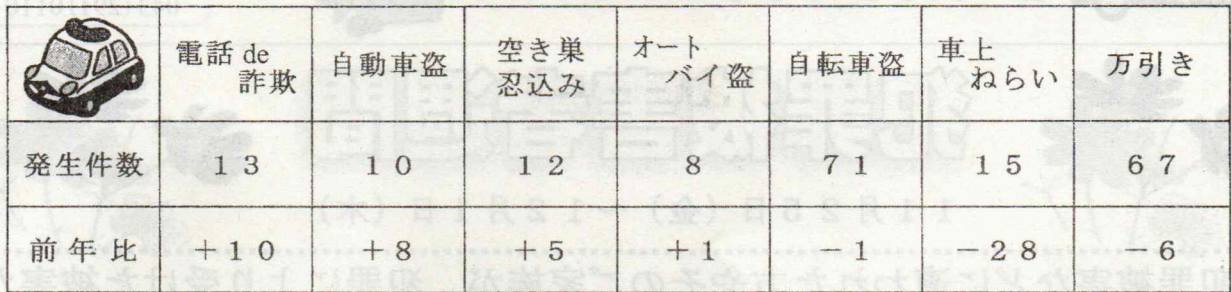 電話de詐欺 自動車盗 空き巣忍込み オートバイ盗 自転車盗 車上ねらい 万引き
発生件数 13 10 12 8 71 15 67
前年比 +10 +8 +5 +1 -1 -28 -6